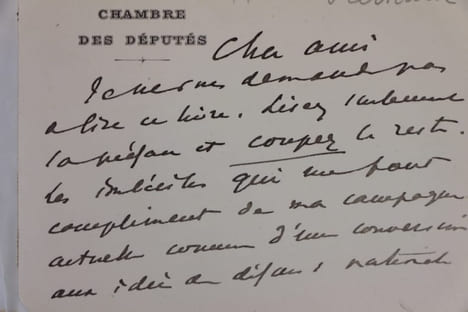 CHAMBRE
DES DÉPUTÉS
Cher ami
Je ne vous demande pas
à lire ce livre. Lisez seulement
la préface et coupez le reste.
Les imbéciles qui me font
compliment de ma campagne
actuelle comme d'une conversion
aux idées de défense nationale